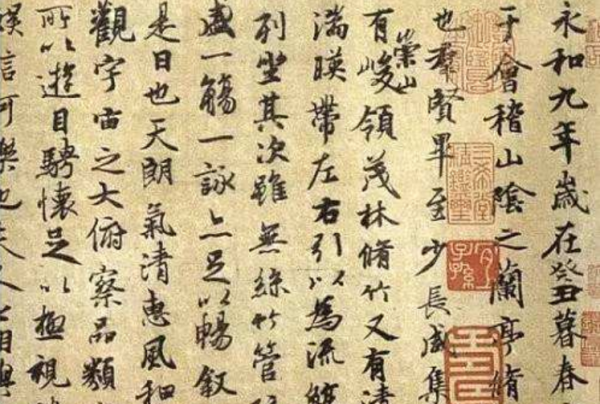 永和九年歲在癸丑暮春
于會稽山陰之蘭亭脩
也羣賢畢至少長咸集
有崇山峻領茂林脩竹又有清
湍暎帶左右引以為流觴
列坐其次雖無絲竹管
盛一觴一詠亦足以暢叙
是日也天朗氣清惠風和
觀宇宙之大俯察品類
所以遊目騁懷足以極視
娛信可樂也夫人之相與
三希堂精鑑璽
宜子孫